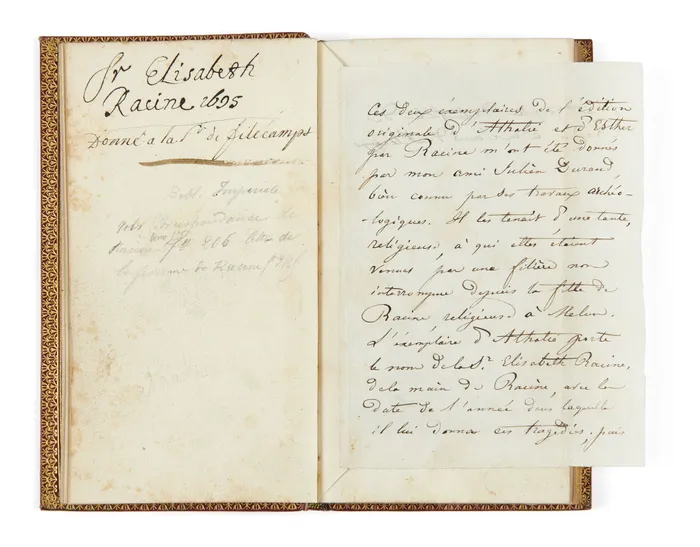 Sr Elisabeth
Racine 1695
Donné a la Sr de filécamps
Bibl. Impériale
Correspondance de
Racine
206
de
la femme de Racine
Ces deux exemplaires de l'édition
originale d'Athalie et d'Esther
par Racine m'ont été donnés
par mon ami Julien Durand,
bien connu par ses travaux archéo-
-logiques. Il les tenait d'une tante,
religieuse, à qui elles étaient
venues par une filière non
interrompue depuis la fille de
Racine religieuse à Melun.
L'exemplaire d'Athalie porte
le nom de la Sr. Elisabeth Racine,
de la main de Racine, avec la
date de l'année dans laquelle
il lui donna ces tragédies, puis